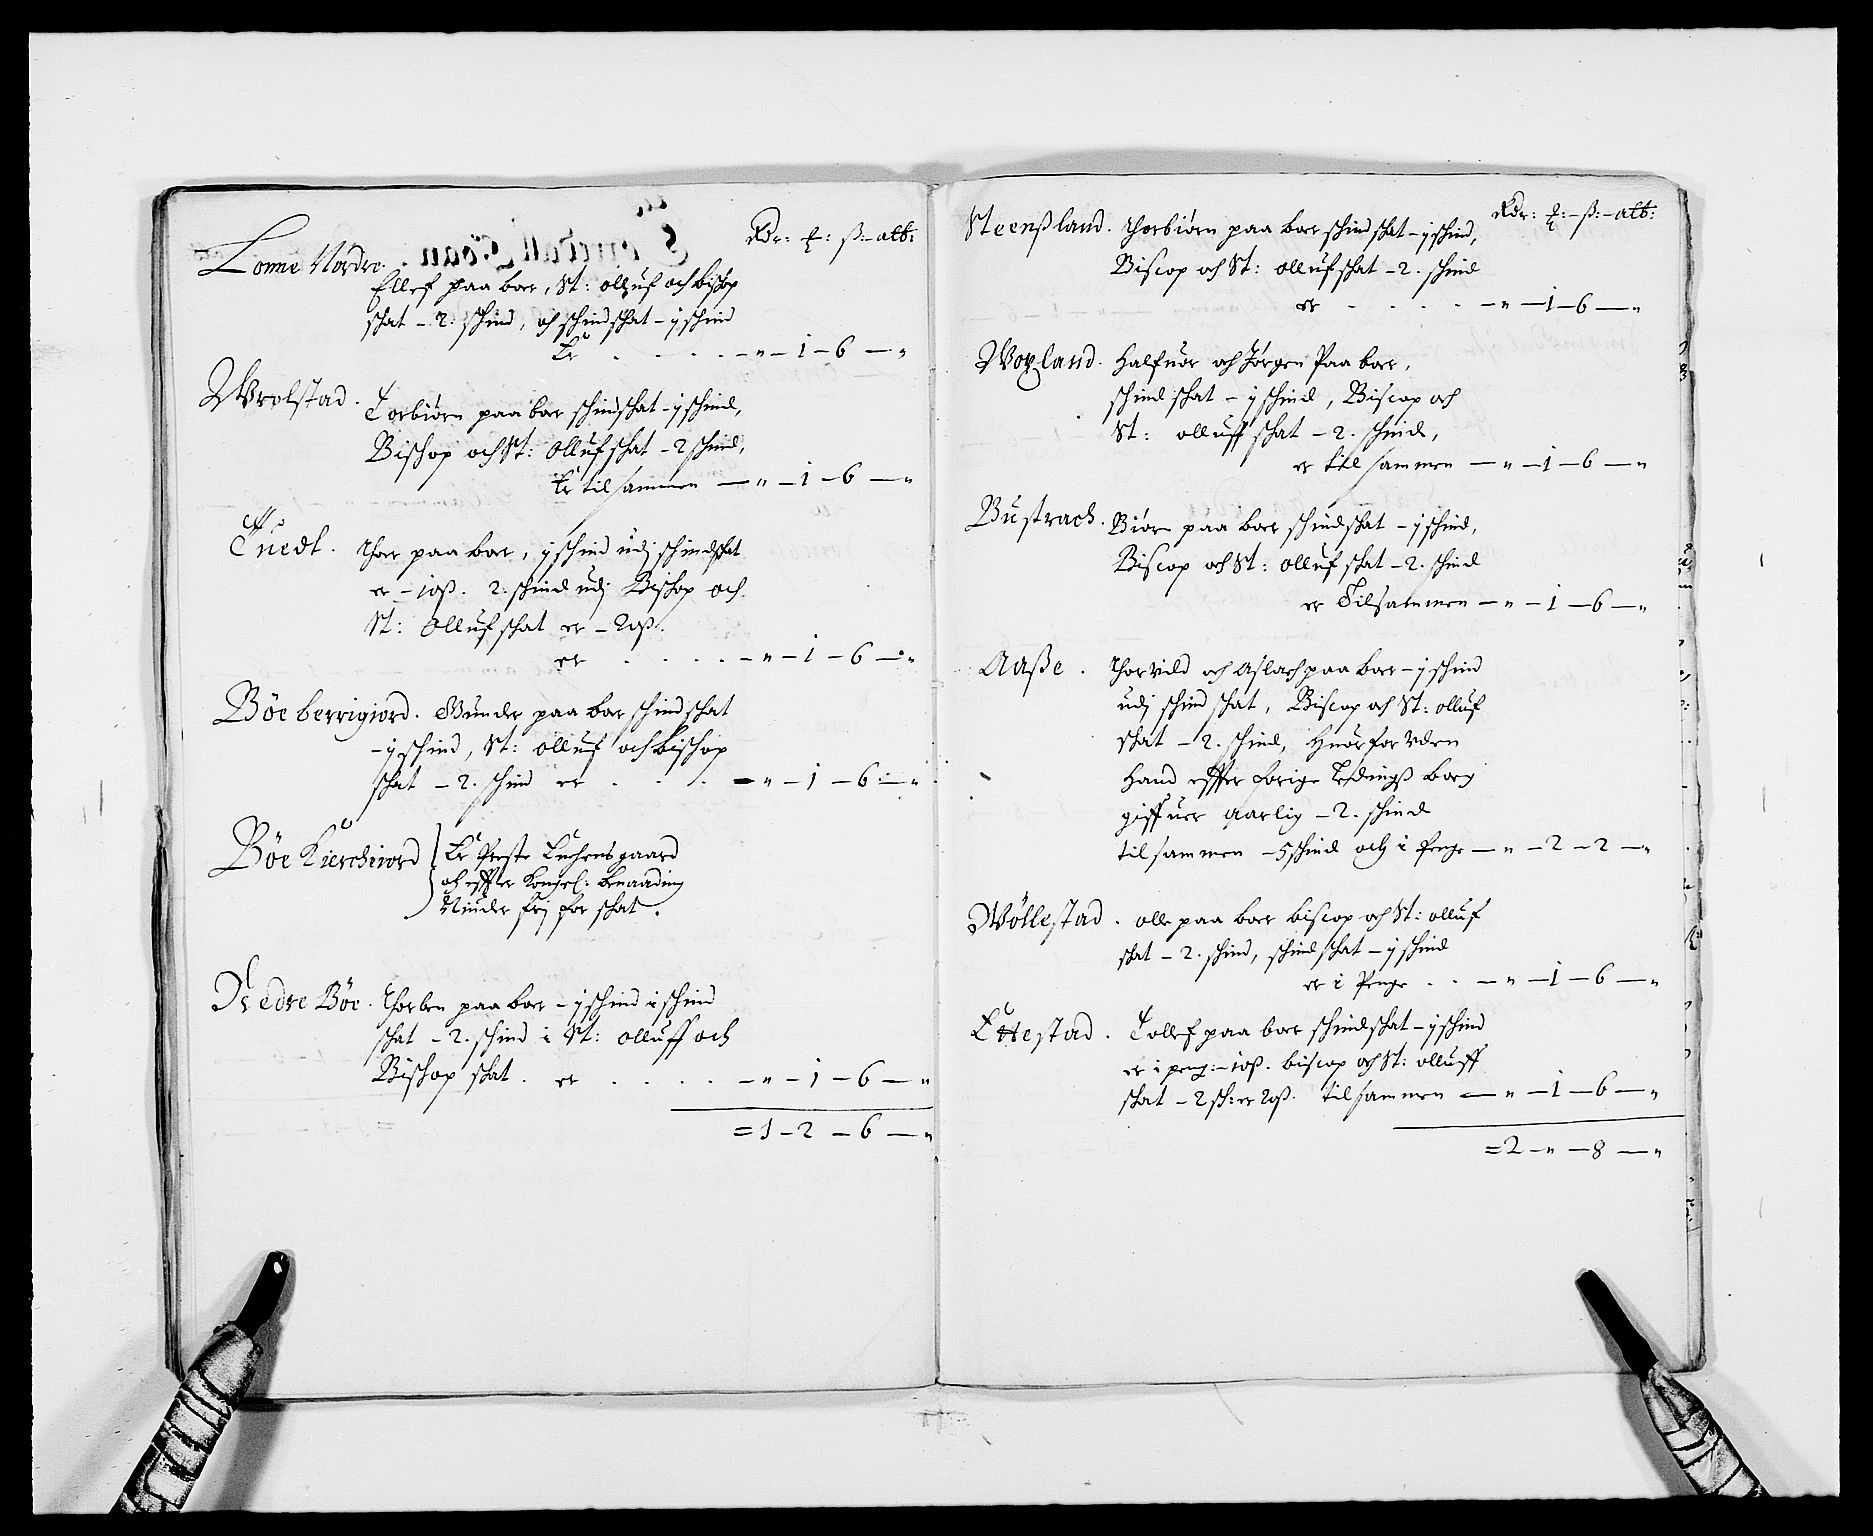 Rdr: ꝶ: ß: alb:
Lonne Nordre.
Ellef paa boer, St: olluf och bishop
schat – 2: schind, och schindschat – j schind
Er . . . . – „ – 1 – 6 – „
Wrolstad. Torbiørn paa boer schindschat – j schind,
Bischop och St: Olluf schat – 2 schind,
Er tilsammen – „ – 1 – 6 – „
Tuedt. Thor paa boer, j schind udj schindschat
er – 10ß. 2: schind udj Bischop och
St: Olluf schat er – 20ß.
er . . . . – „ – 1 – 6 – „
Böe berrigiord. Gunder paa boer schindschat
– j schind, St: olluf och bischop
schat – 2. schind er . . . – „ – 1 – 6 – „
Böe Kierchiord Er Preste Enchens gaard
och effter Kongel: benaading
Niuder frj for schat.
Nedre Böe. Thorben paa boer – j schind i schind
schat – 2. schind i St: olluff och
Bischop schat. er . . . . – „ – 1 – 6 – „
= 1 – 2 – 6 – „
Rdr: ꝶ: – ß: – alb:
Steenßland. Thorbiørn paa boer schindschat – j schind,
Biscop och St: olluf schat – 2. schind
er . . . . – „ – 1 – 6 – „
Woxland. Halfuor och Jørgen Paa boer,
schindschat – j schind, Biscop och
St: olluff schat – 2. schind,
er tilsammen – „ – 1 – 6 – „
Bustrach. Biørn paa boer schindschat – j schind,
Biscop och St: olluf schat – 2. schind
er Tilsammen – „ – 1 – 6 – „
Aaße. Thorvild och Aslach paa boer – j schind
udj schindschat, Biscop och St: olluf
schat – 2. schind, Huorforuden
Hand effter forige Ledings boeg
giffuer Aarlig – 2. schind
tilsammen – 5 schind och i Penge – „ – 2 – 2 – „
Wöllestad. olle paa boer biscop och St: olluf
schat – 2. schind, schindschat – j schind
er i Penge . . – „ – 1 – 6 – „
Ettestad. Tollef paa boer schindschat – j schind
er i peng: – 10ß. biscop och St: olluff
schat – 2 sch: er 20ß. tilsammen – „ – 1 – 6 – „
= 2 – „ – 8 – „